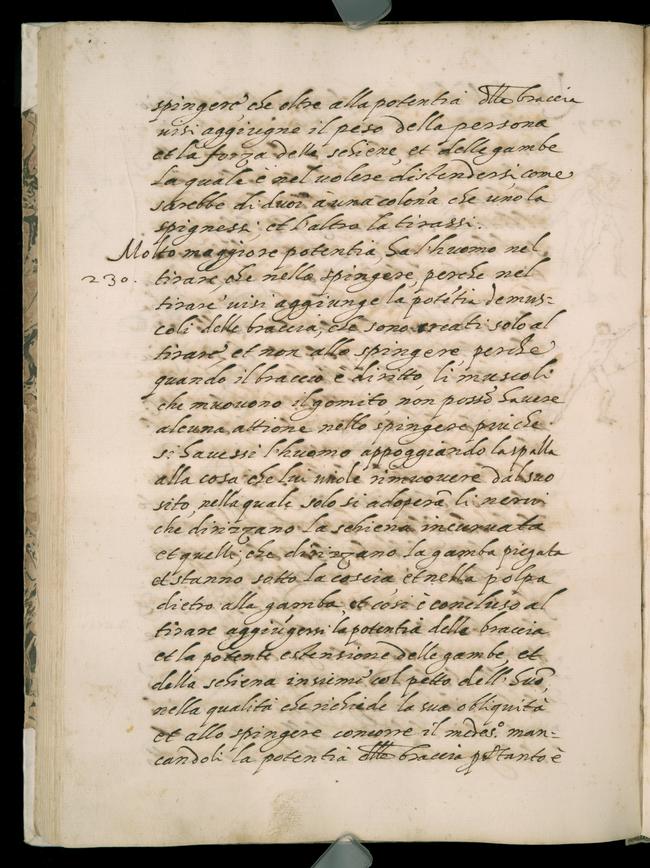 spingere che oltre alla potentia dlle braccia
uisi aggiugne il peso della persona
et la forza delle schiene, et delle gambe
La quale è nel uolere distendersi, come
sarebbe di duoi à una colona che uno la
spignessi, et l'altro la tirassi.
Molto maggiore potentia ha l'huomo nel
230. tirare che nello spingere, perche nel
tirare uisi aggiunge la potẽtia de mus=
coli delle braccia, che sono creati solo al
tirare, et non allo spingere, perche
quando il braccio è diritto, li muscoli
che muouono il gomito, non possõ hauere
alcuna attione nello spingere piu che
si hauessi l'huomo appoggiando la spalla
alla cosa che lui uuole rimuouere dal suo
sito, nella quale solo si adoperã li nerui
che dirizzano la schiena incuruata
et quelli, che dirizzano la gamba piegata
et stanno sotto la coscia et nella polpa
dietro alla gamba, et cosi è concluso al
tirare aggiũgersi la potentia delle braccia
et la potente estensione delle gambe, et
della schiena insieme col petto dell'huõ,
nella qualità che richiede la sua obliquità
et allo spingere concorre il medesº. man=
candoli la potentia dlle braccia ꝑ tanto è